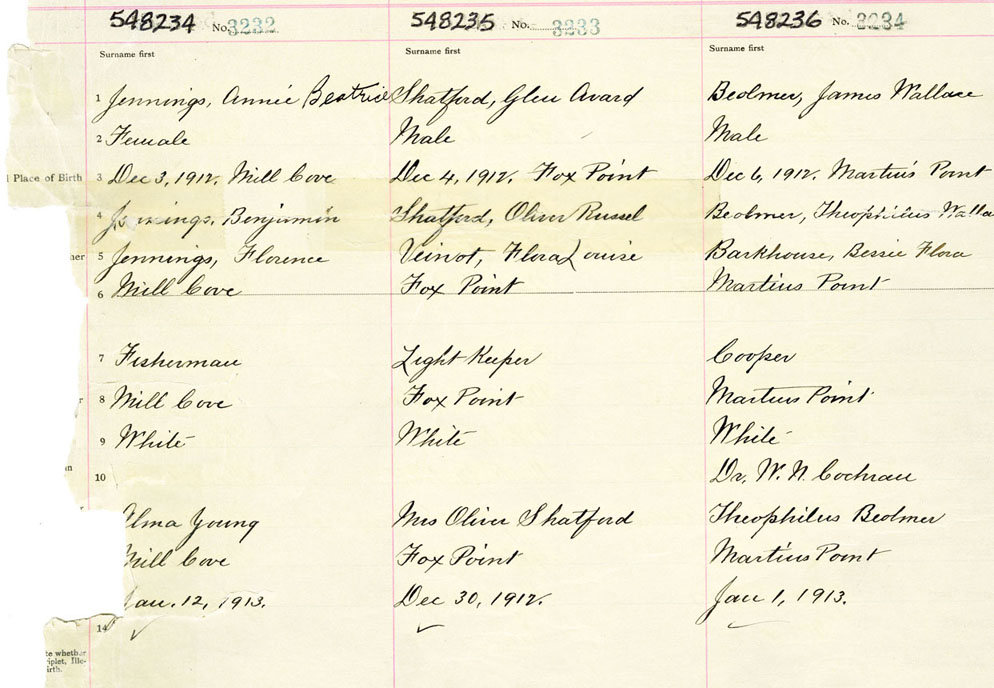 548234 No. 3232 548235 No. 3233 548236 No. 3234
Surname first Surname first Surname first
1 Jennings, Annie Beatrice Shatford, Glen Avard Beolmer, James Wallace
2 Female Male Male
l Place of Birth 3 Dec 3, 1912. Mill Cove Dec 4, 1912. Fox Point Dec 6, 1912. Martins Point
4 Jennings, Benjamin Shatford, Oliver Russel Beolmer, Theophilus Walla
her 5 Jennings, Florence Veinot, Flora Louise Barkhouse, Bessie Flora
6 Mill Cove Fox Point Martins Point
7 Fisherman Light Keeper Cooper
r 8 Mill Cove Fox Point Martins Point
9 White White White
in 10 Dr. W. N. Cochran
Alma Young Mrs Oliver Shatford Theophilus Beolmer
Mill Cove Fox Point Martins Point
Jan. 12, 1913. Dec 30, 1912. Jan 1, 1913.
14
te whether
riplet, Ille-
irth.